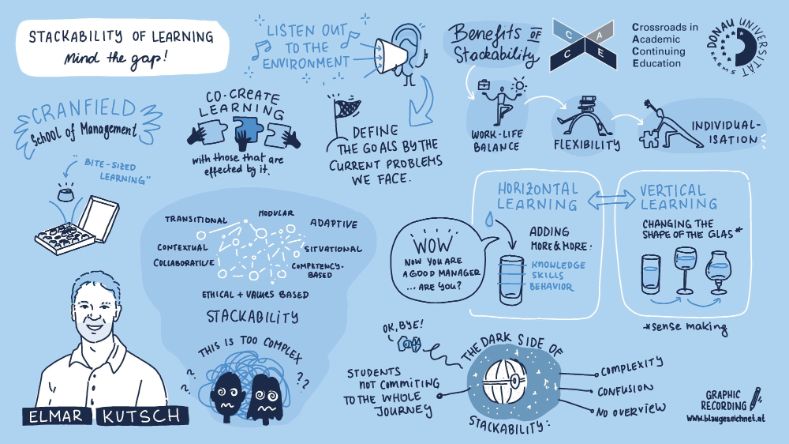 STACKABILITY OF LEARNING
Mind the gap!
LISTEN OUT
TO THE
ENVIRONMENT
Benefits OF
Stackability
CACE
Crossroads in
Academic
Continuing
Education
DONAU UNIVERSITÄT
KREMS
CRANFIELD
School of Management
"BITE-SIZED
LEARNING"
CO-CREATE
LEARNING
with those that are
effected by it.
DEFINE
THE GOALS BY THE
CURRENT PROBLEMS
WE FACE.
WORK-LIFE
BALANCE
FLEXIBILITY
INDIVIDUAL-
ISATION
TRANSITIONAL
MODULAR
ADAPTIVE
CONTEXTUAL
SITUATIONAL
COLLABORATIVE
COMPETENCY-
BASED
ETHICAL + VALUES BASED
STACKABILITY
THIS IS TOO COMPLEX
? ? ?
? ?
ELMAR KUTSCH
WOW
NOW YOU ARE
A GOOD MANAGER
... ARE YOU?
HORIZONTAL
LEARNING
ADDING
MORE & MORE:
KNOWLEDGE
SKILLS
BEHAVIOR
VERTICAL
LEARNING
CHANGING THE
SHAPE OF THE GLAS*
*sense making
OK, BYE!
STUDENTS
NOT COMMITING
TO THE WHOLE
JOURNEY
THE DARK SIDE OF
STACKABILITY:
COMPLEXITY
CONFUSION
NO OVERVIEW
GRAPHIC
RECORDING
www.blaugezeichnet.at